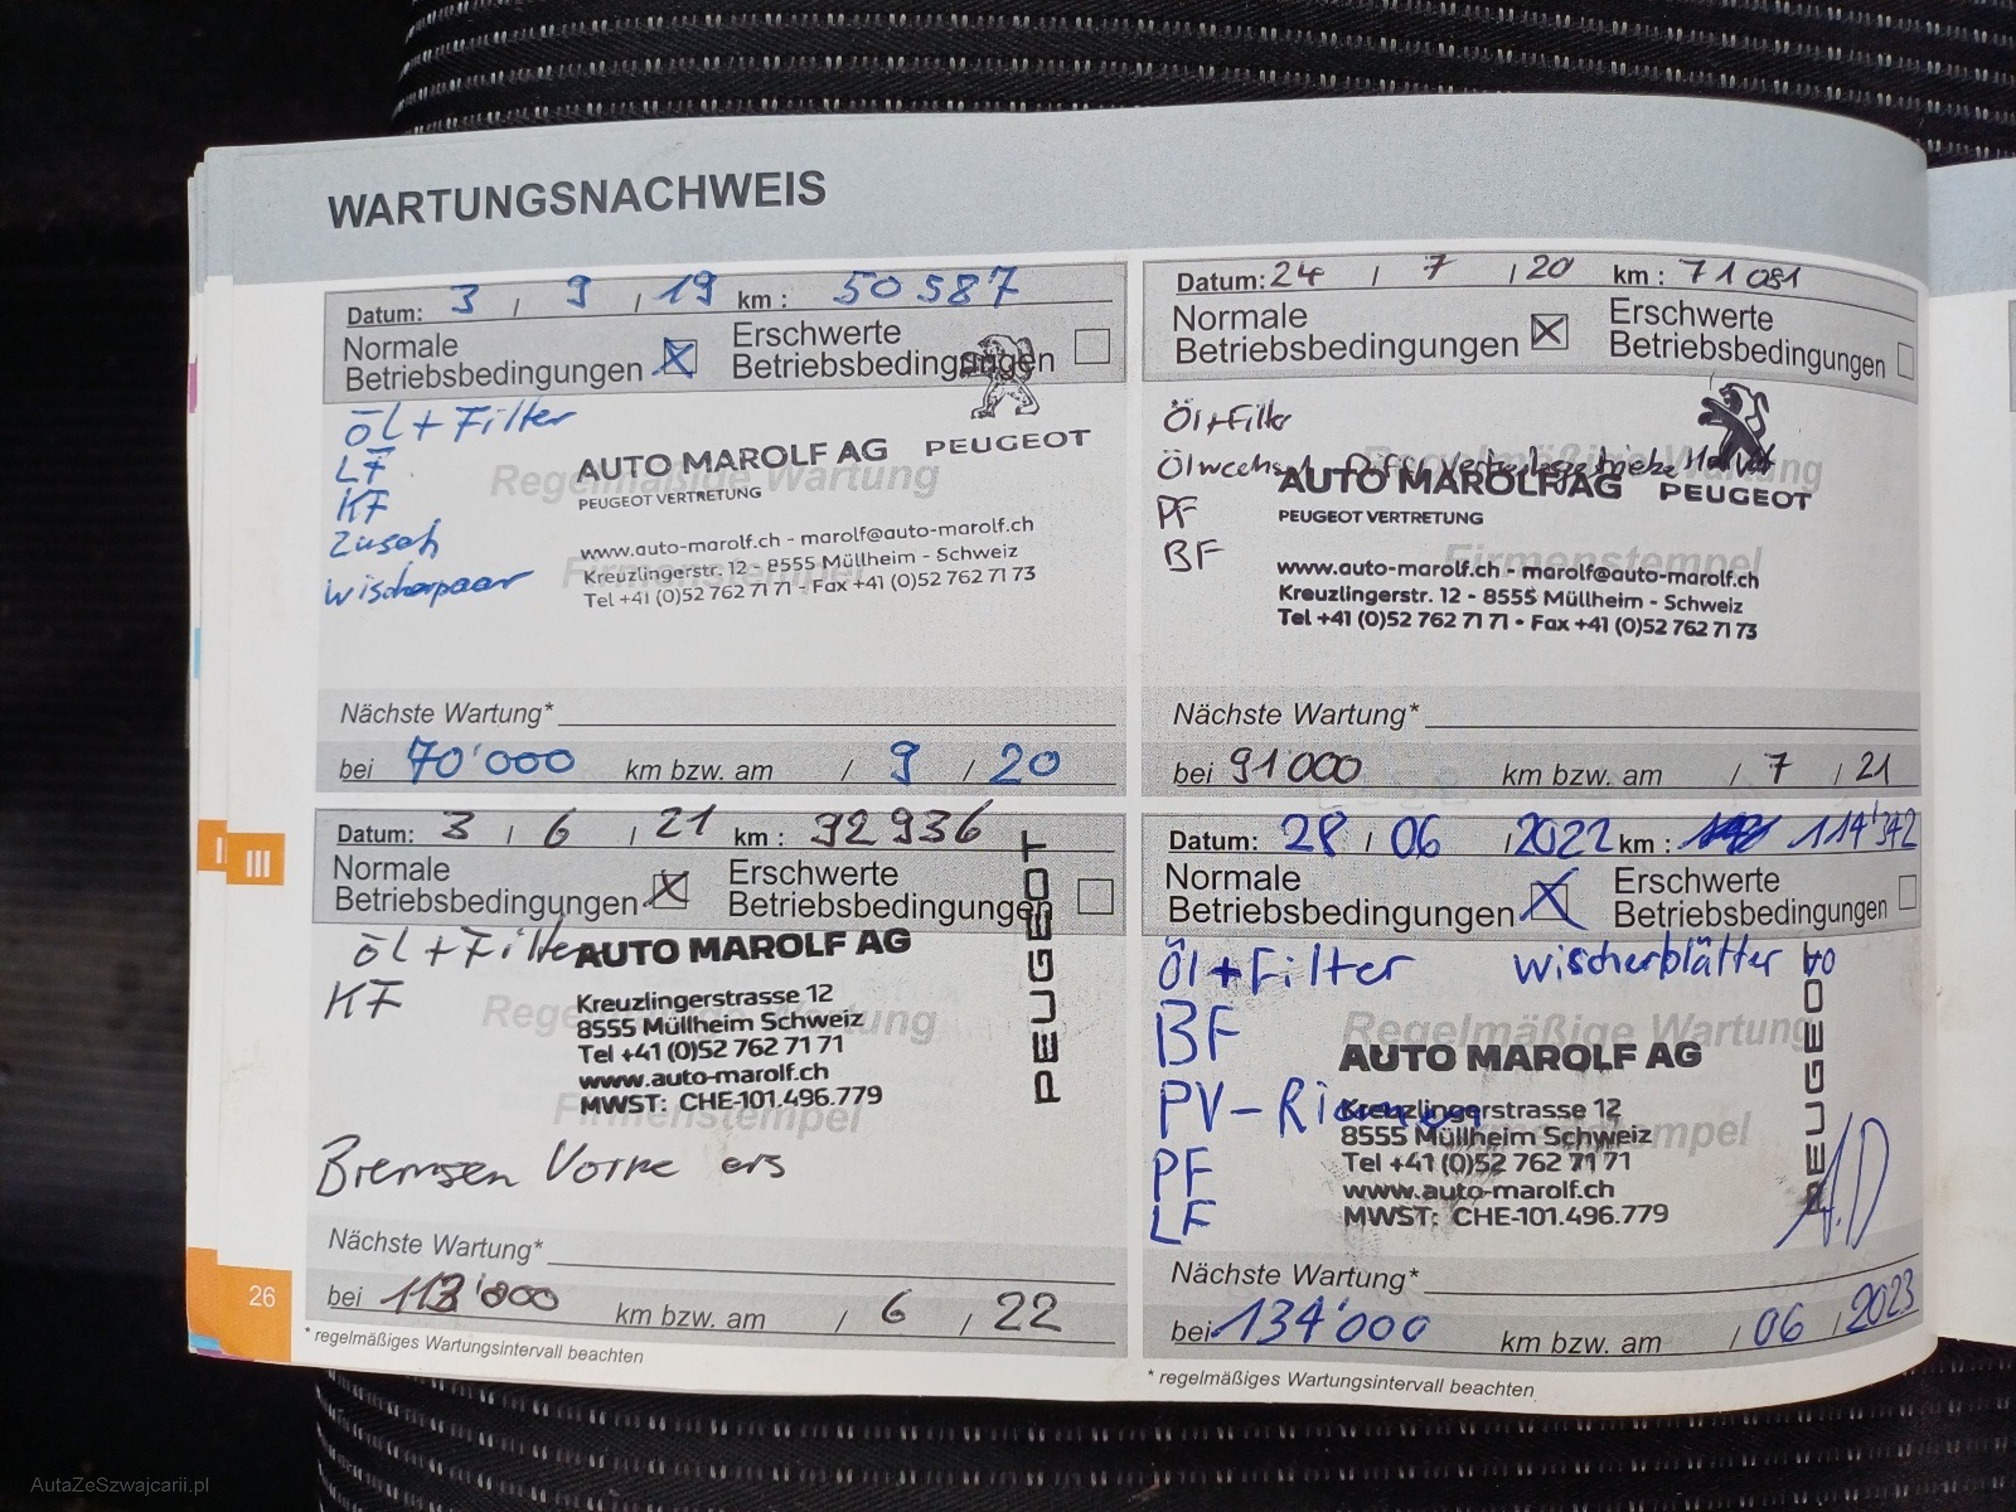 WARTUNGSNACHWEIS
Datum: 3 / 9 / 19 km : 50 587
Normale Betriebsbedingungen
Erschwerte Betriebsbedingungen
Öl + Filter
LF
KF
Zusatz
Wischerpaar
Regelmäßige Wartung
AUTO MAROLF AG PEUGEOT
PEUGEOT VERTRETUNG
Firmenstempel
www.auto-marolf.ch - marolf@auto-marolf.ch
Kreuzlingerstr. 12 - 8555 Müllheim - Schweiz
Tel +41 (0)52 762 71 71 - Fax +41 (0)52 762 71 73
Nächste Wartung*
bei 70'000 km bzw. am / 9 / 20
Datum: 24 / 7 / 20 km : 71 081
Normale Betriebsbedingungen
Erschwerte Betriebsbedingungen
Öl+Filter
Ölwechsel
PF
BF
Regelmäßige Wartung
AUTO MAROLF AG PEUGEOT
PEUGEOT VERTRETUNG
Firmenstempel
www.auto-marolf.ch - marolf@auto-marolf.ch
Kreuzlingerstr. 12 - 8555 Müllheim - Schweiz
Tel +41 (0)52 762 71 71 • Fax +41 (0)52 762 71 73
Nächste Wartung*
bei 91 000 km bzw. am / 7 / 21
Datum: 3 / 6 / 21 km : 92 936
Normale Betriebsbedingungen
Erschwerte Betriebsbedingungen
Öl + Filter
KF
Regelmäßige Wartung
AUTO MAROLF AG
PEUGEOT
Kreuzlingerstrasse 12
8555 Müllheim Schweiz
Tel +41 (0)52 762 71 71
www.auto-marolf.ch
MWST: CHE-101.496.779
Firmenstempel
Bremsen Vorne ers
Nächste Wartung*
bei 113'000 km bzw. am / 6 / 22
* regelmäßiges Wartungsintervall beachten
Datum: 28 / 06 / 2022 km : 114'342
Normale Betriebsbedingungen
Erschwerte Betriebsbedingungen
Öl + Filter Wischerblätter
BF
PV-Riemen
PF
LF
Regelmäßige Wartung
AUTO MAROLF AG
PEUGEOT
Kreuzlingerstrasse 12
8555 Müllheim Schweiz
Tel +41 (0)52 762 71 71
www.auto-marolf.ch
MWST: CHE-101.496.779
Firmenstempel
A.D
Nächste Wartung*
bei 134'000 km bzw. am / 06 / 2023
* regelmäßiges Wartungsintervall beachten
III
26
AutaZeSzwajcarii.pl